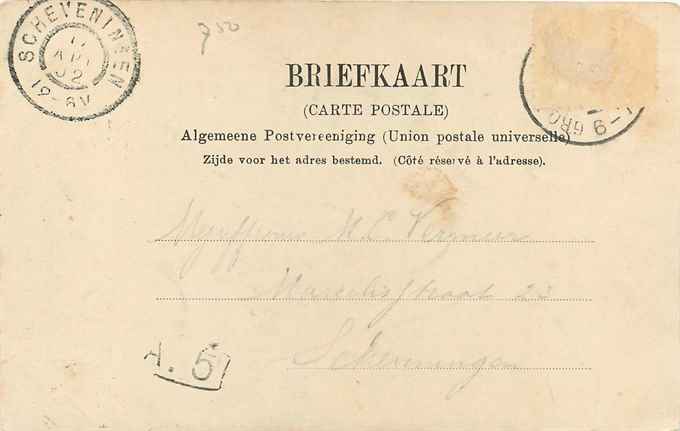 750
SCHEVENINGEN
12-6V
BRIEFKAART
(CARTE POSTALE)
Algemeene Postvereeniging (Union postale universelle)
Zijde voor het adres bestemd. (Côté réservé à l'adresse).
M. C. Vermeer
straat 23
Scheveningen
A. 5